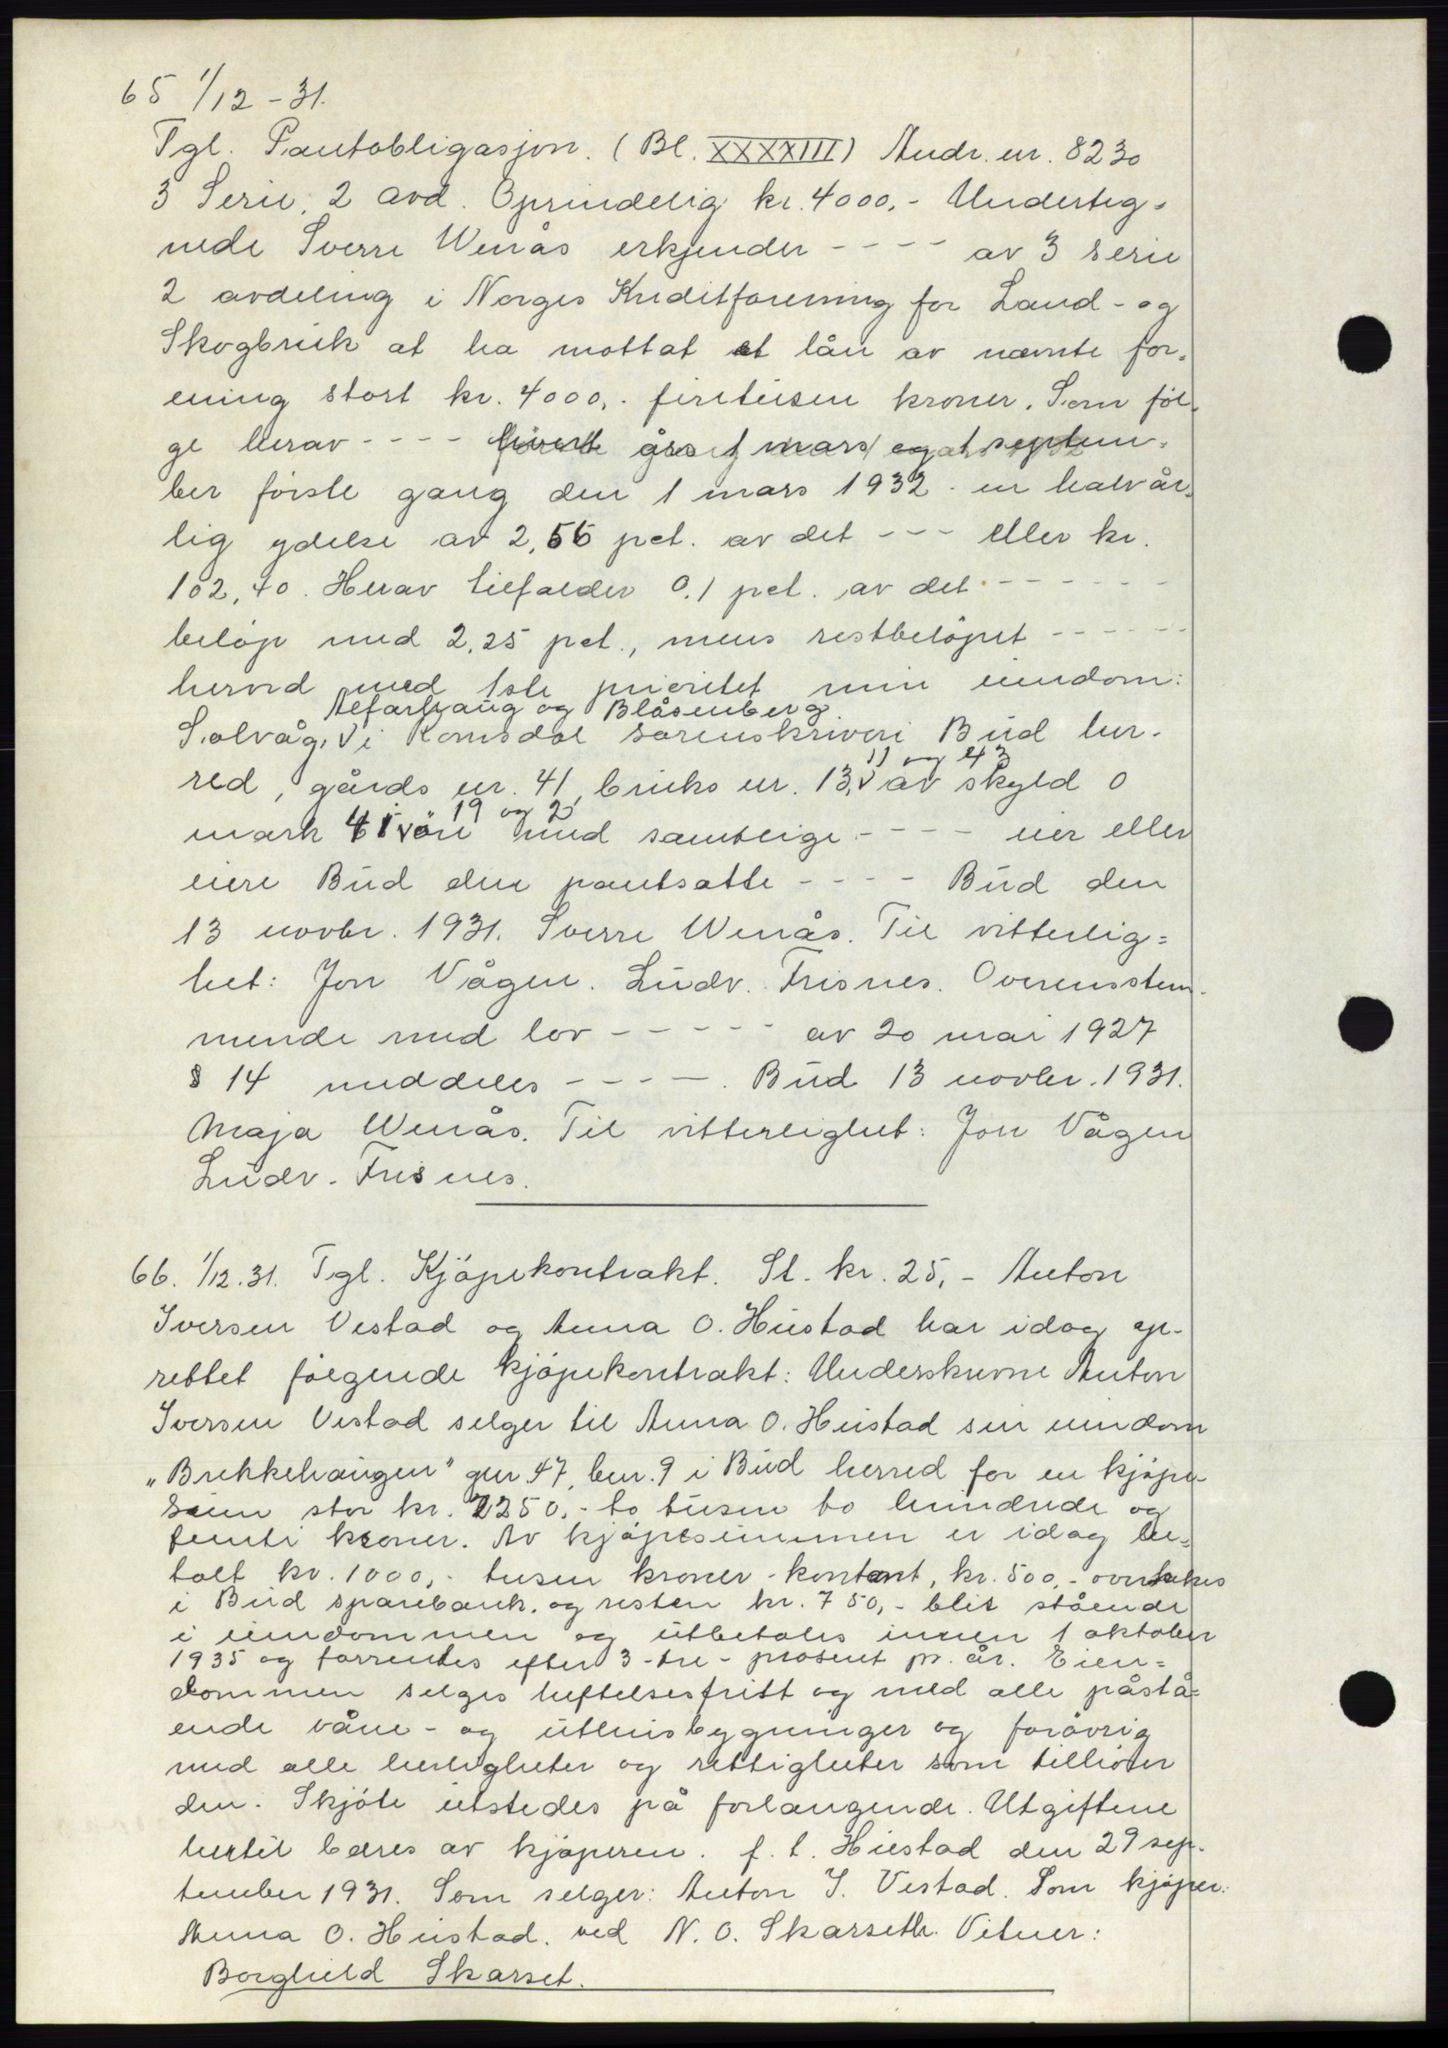 65 1/12 - 31.
Tgl. Pantobligasjon. (Bl. XXXXIII) Andr. nr. 8230
3 Serie, 2 avd. Oprindelig kr. 4000,- Underteg-
nede Sverre Wenås erkjender - - - - av 3 serie
2 avdeling i Norges Kreditforening for Land- og
Skogbruk at ha mottat et lån av nævnte for-
ening stort kr. 4000,- firetusen kroner. Som föl-
ge herav - - - - hvert års 1 mars og 1 septem-
ber förste gang den 1 mars 1932 en halvår-
lig ydelse av 2,56 pct. av det - - - eller kr.
102,40. Herav tilfalder 0.1 pct. av det - - - - - -
belöp med 2,25 pct., mens restbelöpet - - - - - -
herved med 1ste prioritet min eiendom:
Alfarhaug og Blåsenberg
Solvåg, V i Romsdal sorenskriveri Bud her-
11 og 43
red, gårds nr. 41, bruks nr. 13, V av skyld 0
19 og 2
mark 41 V öre med samtlige - - - - eier eller
eiere Bud den pantsatte - - - - Bud den
13 novbr. 1931. Sverre Wenås. Til vitterlig-
het: Jon Vågen. Ludv. Frisnes. Overensstem-
mende med lov - - - - - av 20 mai 1927
§ 14 meddeles - - - -. Bud 13 novbr. 1931.
Maja Wenås. Til vitterlighet: Jon Vågen
Ludv. Frisnes.
66. 1/12.31. Tgl. Kjöpekontrakt. St. kr. 25,- Anton
Iversen Vestad og Anna O. Hustad har idag op-
rettet fölgende kjöpekontrakt: Underskrevne Anton
Iversen Vestad selger til Anna O. Hustad sin eiendom
"Brekkehaugen" gnr. 47, bnr. 9 i Bud herred for en kjöpe-
sum stor kr. 2250,- to tusen to hundrede og
femti kroner. Av kjöpesummen er idag be-
talt kr. 1000,- tusen kroner - kontant, kr. 500,- overtakes
i Bud sparebank, og resten kr. 750,- blir stående
i eiendommen og utbetales innen 1 oktober
1935 og forrentes efter 3 - tre - prosent pr. år. Eien-
dommen selges heftelsesfritt og med alle påstå-
ende våne- og uthusbygninger og forövrig
med alle herligheter og rettigheter som tilhörer
den. Skjöte utstedes på forlangende. Utgiftene
hertil bæres av kjöperen. f. t. Hustad den 29 sep-
tember 1931. Som selger: Anton I. Vestad. Som kjöper:
Anna O. Hustad. ved N. O. Skarseth. Vitner:
Borghild Skarset.